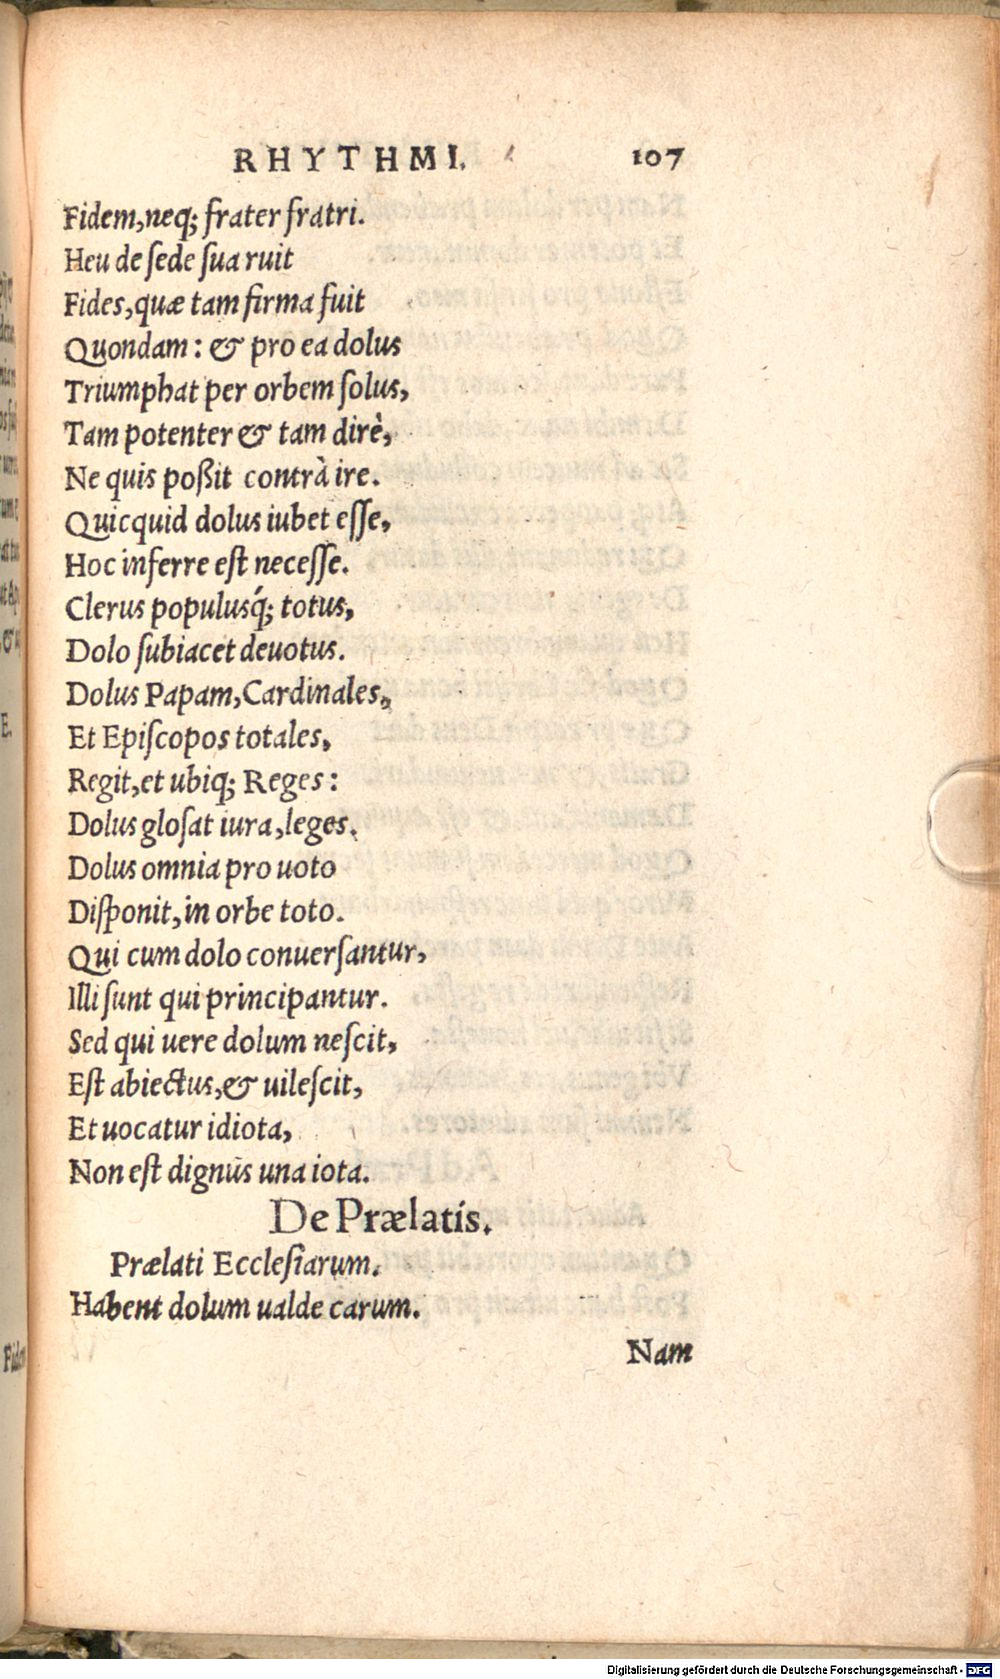 RHYTHMI. 107
Fidem, neq; frater fratri.
Heu de ſede ſua ruit
Fides, quæ tam firma fuit
Quondam: & pro ea dolus
Triumphat per orbem ſolus,
Tam potenter & tam dirè,
Ne quis poßit contrà ire.
Quicquid dolus iubet eſſe,
Hoc inferre eſt neceſſe.
Clerus populusq́; totus,
Dolo ſubiacet deuotus.
Dolus Papam, Cardinales,
Et Epiſcopos totales,
Regit, et ubiq; Reges:
Dolus gloſat iura, leges.
Dolus omnia pro uoto
Diſponit, in orbe toto.
Qui cum dolo conuerſantur,
Illi ſunt qui principantur.
Sed qui uere dolum neſcit,
Eſt abiectus, & uileſcit,
Et uocatur idiota,
Non eſt dignus una iota.
De Prælatis.
Prælati Eccleſiarum.
Habent dolum ualde carum.
Nam
Digitalisierung gefördert durch die Deutsche Forschungsgemeinschaft - DFG